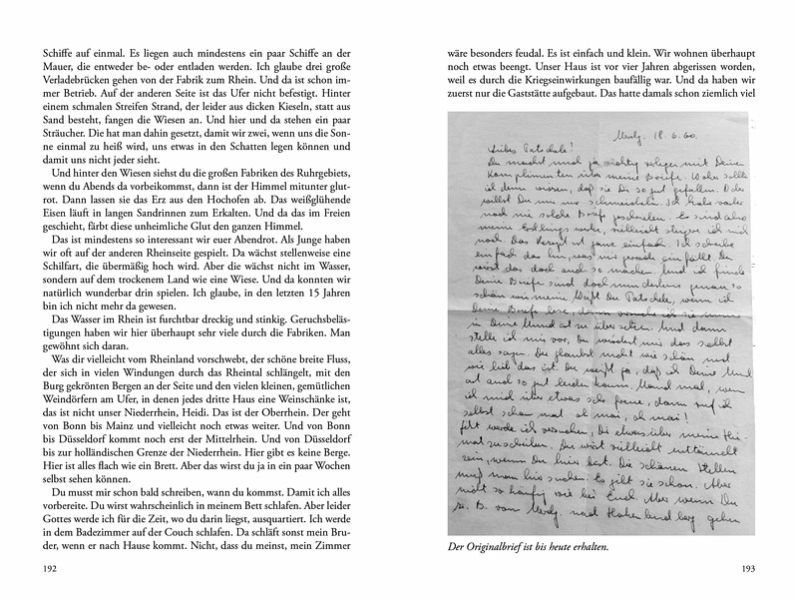 Schiffe auf einmal. Es liegen auch mindestens ein paar Schiffe an der
Mauer, die entweder be- oder entladen werden. Ich glaube drei große
Verladebrücken gehen von der Fabrik zum Rhein. Und da ist schon im-
mer Betrieb. Auf der anderen Seite ist das Ufer nicht befestigt. Hinter
einem schmalen Streifen Strand, der leider aus dicken Kieseln, statt aus
Sand besteht, fangen die Wiesen an. Und hier und da stehen ein paar
Sträucher. Die hat man dahin gesetzt, damit wir zwei, wenn uns die Son-
ne einmal zu heiß wird, uns etwas in den Schatten legen können und
damit uns nicht jeder sieht.
Und hinter den Wiesen siehst du die großen Fabriken des Ruhrgebiets,
wenn du Abends da vorbeikommst, dann ist der Himmel mitunter glut-
rot. Dann lassen sie das Erz aus den Hochofen ab. Das weißglühende
Eisen läuft in langen Sandrinnen zum Erkalten. Und da das im Freien
geschieht, färbt diese unheimliche Glut den ganzen Himmel.
Das ist mindestens so interessant wir euer Abendrot. Als Junge haben
wir oft auf der anderen Rheinseite gespielt. Da wächst stellenweise eine
Schilfart, die übermäßig hoch wird. Aber die wächst nicht im Wasser,
sondern auf dem trockenen Land wie eine Wiese. Und da konnten wir
natürlich wunderbar drin spielen. Ich glaube, in den letzten 15 Jahren
bin ich nicht mehr da gewesen.
Das Wasser im Rhein ist furchtbar dreckig und stinkig. Geruchsbeläs-
tigungen haben wir hier überhaupt sehr viele durch die Fabriken. Man
gewöhnt sich daran.
Was dir vielleicht vom Rheinland vorschwebt, der schöne breite Fluss,
der sich in vielen Windungen durch das Rheintal schlängelt, mit den
Burg gekrönten Bergen an der Seite und den vielen kleinen, gemütlichen
Weindörfern am Ufer, in denen jedes dritte Haus eine Weinschänke ist,
das ist nicht unser Niederrhein, Heidi. Das ist der Oberrhein. Der geht
von Bonn bis Mainz und vielleicht noch etwas weiter. Und von Bonn
bis Düsseldorf kommt noch erst der Mittelrhein. Und von Düsseldorf
bis zur holländischen Grenze der Niederrhein. Hier gibt es keine Berge.
Hier ist alles flach wie ein Brett. Aber das wirst du ja in ein paar Wochen
selbst sehen können.
Du musst mir schon bald schreiben, wann du kommst. Damit ich alles
vorbereite. Du wirst wahrscheinlich in meinem Bett schlafen. Aber leider
Gottes werde ich für die Zeit, wo du darin liegst, ausquartiert. Ich werde
in dem Badezimmer auf der Couch schlafen. Da schläft sonst mein Bru-
der, wenn er nach Hause kommt. Nicht, dass du meinst, mein Zimmer
192
wäre besonders feudal. Es ist einfach und klein. Wir wohnen überhaupt
noch etwas beengt. Unser Haus ist vor vier Jahren abgerissen worden,
weil es durch die Kriegseinwirkungen baufällig war. Und da haben wir
zuerst nur die Gaststätte aufgebaut. Das hatte damals schon ziemlich viel
18.6.60.
Liebes Patschele!
Du machst mich ja richtig verlegen mit Deinen
Komplimenten über meine Briefe. Woher sollte
ich denn wissen, daß sie Dir so gut gefallen. Oder
willst Du mir nur schmeicheln. Ich habe vorher
noch nie solche Briefe geschrieben. Es sind also
meine Erstlings werke, vielleicht steigere ich mich
noch. Das Rezept ist ganz einfach. Ich schreibe
einfach das hin, was mir gerade einfällt. Du
wirst das doch auch so machen. Und ich finde
Deine Briefe sind doch mindestens genau so
schön wie meine. Weißt Du Patschele, wenn ich
Deine Briefe lese, dann versuche ich sie immer
in Deine Mundart zu übersetzen. Und dann
stelle ich mir vor, Du würdest mir das selbst
alles sagen. Du glaubst nicht wie schön und
wie lieb das ist. Du weißt ja, daß ich Deine Mund
art auch so gut leiden kann. Manchmal, wenn
ich mich über etwas sehr freue, dann ruf ich
selbst schon mal oh mai, oh mai!
Jetzt werde ich versuchen, Dir etwas über meine Hei-
mat zu schreiben. Du wirst vielleicht enttäuscht
sein, wenn Du hier bist. Die schönen Stellen
muß man hier suchen. Es gibt sie schon. Aber
nicht so häufig wie bei Euch. Aber wenn Du
z. B. von nach Hohenbudberg gehen
Der Originalbrief ist bis heute erhalten.
193